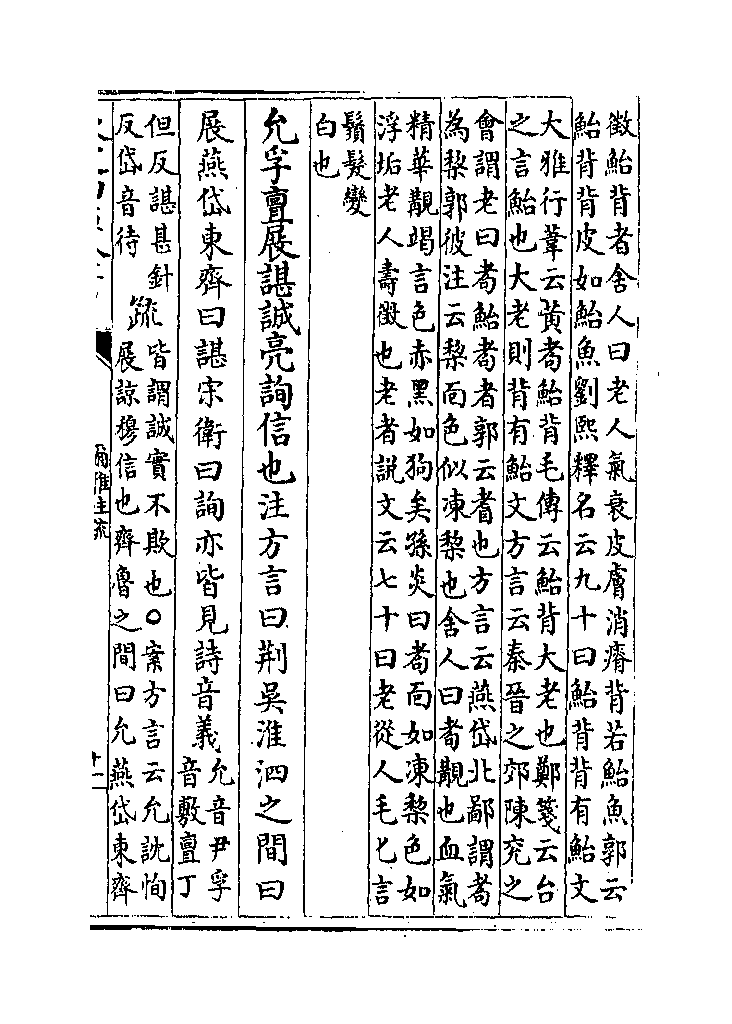 徵鮐背者舍人曰老人氣衰皮膚消瘠背若鮐魚郭云
鮐背背皮如鮐魚劉熙釋名云九十曰鮐背背有鮐文
大雅行葦云黄耇鮐背毛傳云鮐背大老也鄭箋云台
之言鮐也大老則背有鮐文方言云秦晉之郊陳兖之
會謂老曰耇鮐耇者郭云耆也方言云燕岱北鄙謂耇
為棃郭彼注云棃面色似凍棃也舍人曰耇覯也血氣
精華覯竭言色赤黑如狗矣孫炎曰耇面如凍棃色如
浮垢老人壽徵也老者説文云七十曰老從人毛匕言
鬚髮變
白也
允孚亶展諶誠亮詢信也注方言曰荆吳淮泗之間曰
展燕岱東齊曰諶宋衛曰詢亦皆見詩音義
允音尹孚
音敷亶丁
但反諶甚針
反岱音待
疏
皆謂誠實不欺也○案方言云允訦恂
展諒穆信也齊魯之間曰允燕岱東齊
爾雅注疏
十一